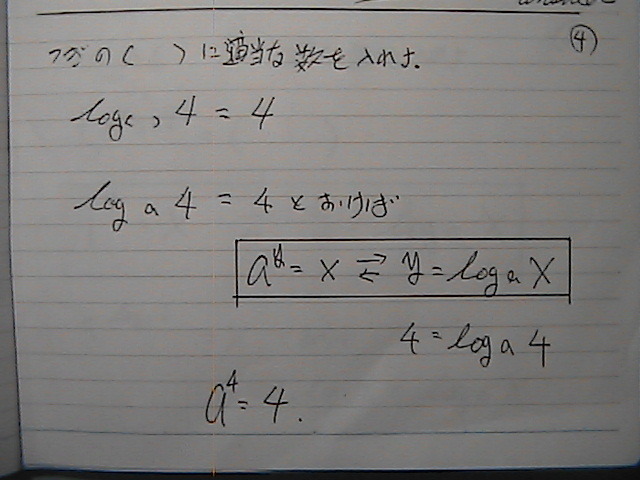 ④
つぎの( )に適当な数を入れよ.
log( ) 4 = 4
log a 4 = 4 とおけば
a^y = x ⇄ y = log a X
4 = log a 4
a^4 = 4.